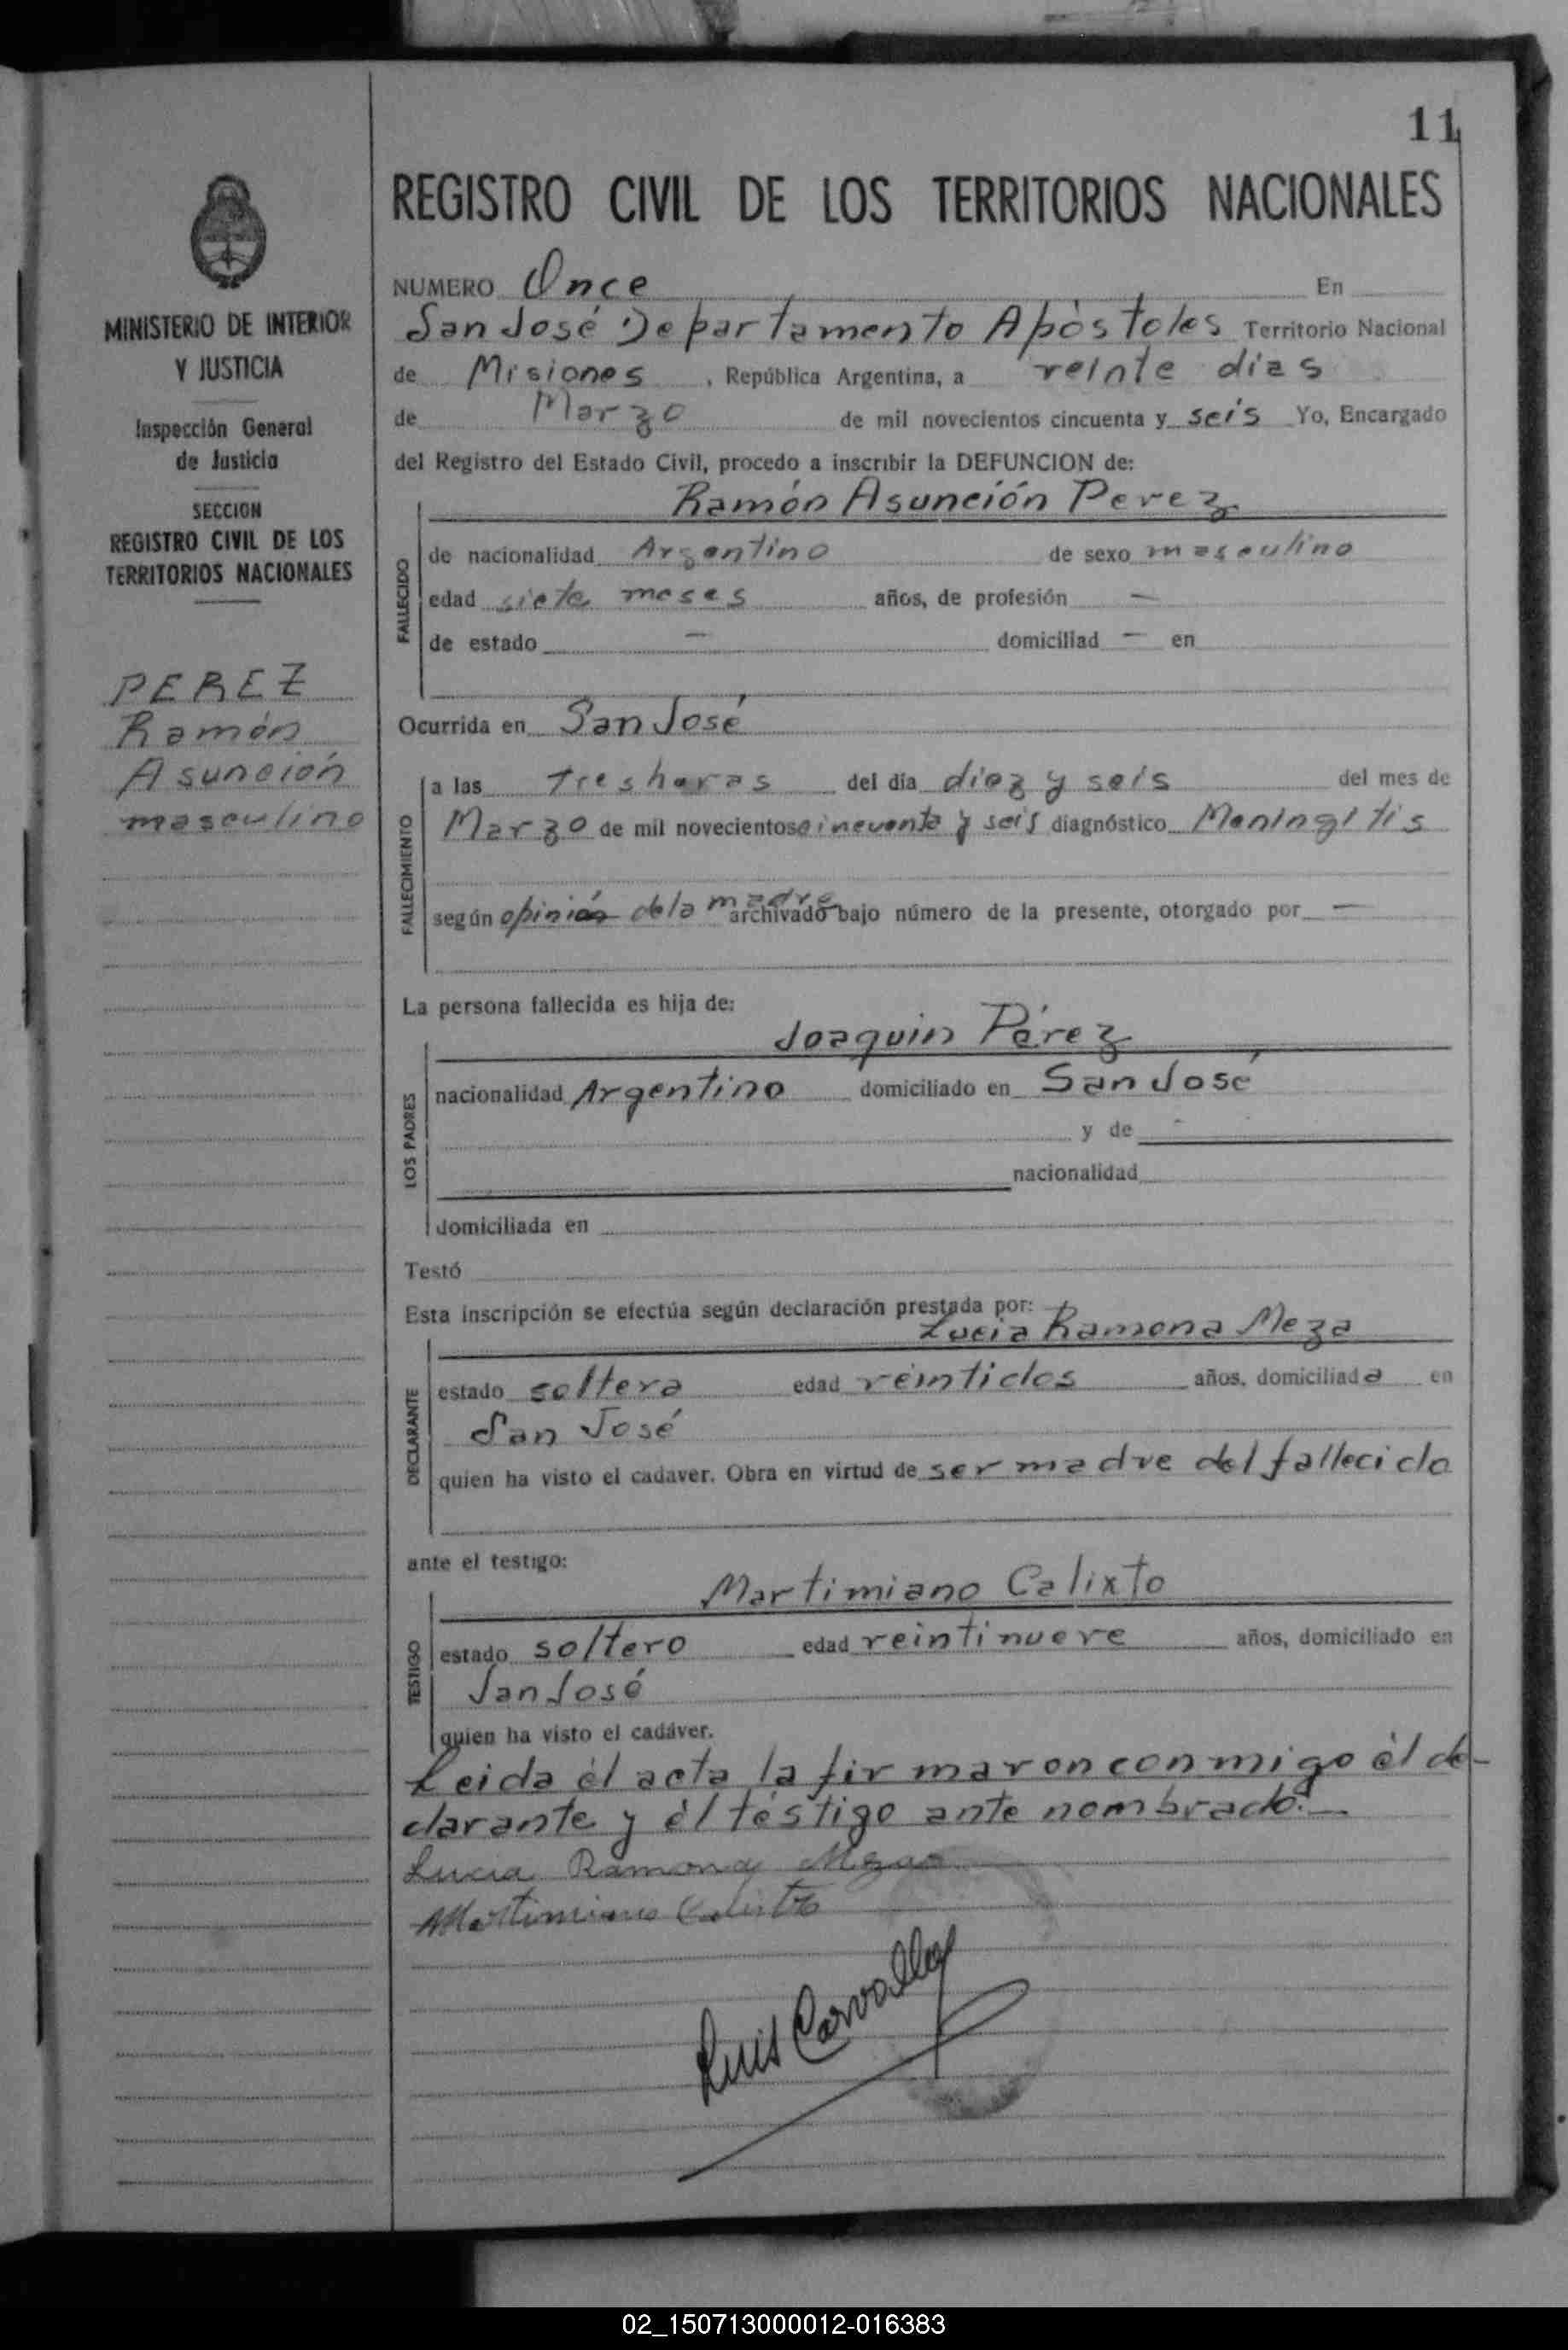 11
REGISTRO CIVIL DE LOS TERRITORIOS NACIONALES
MINISTERIO DE INTERIOR
Y JUSTICIA
Inspección General
de Justicia
SECCION
REGISTRO CIVIL DE LOS
TERRITORIOS NACIONALES
PEREZ
Ramón
Asunción
masculino
NUMERO Once En
San José Departamento Apòstoles Territorio Nacional
de Misiones , República Argentina, a veinte dias
de Marzo de mil novecientos cincuenta y seis Yo, Encargado
del Registro del Estado Civil, procedo a inscribir la DEFUNCION de:
Ramón Asunción Perez
FALLECIDO
de nacionalidad Argentino de sexo masculino
edad siete meses años, de profesión —
de estado — domiciliad — en
Ocurrida en San José
FALLECIMIENTO
a las tres horas del día diez y seis del mes de
Marzo de mil novecientos cincuenta y seis diagnóstico Meningitis
según opinión de la madre archivado bajo número de la presente, otorgado por —
La persona fallecida es hija de:
Joaquin Pérez
LOS PADRES
nacionalidad Argentino domiciliado en San José
y de -
nacionalidad
domiciliada en
Testó
Esta inscripción se efectúa según declaración prestada por:
Lucia Ramona Meza
DECLARANTE
estado soltera edad veintidos años, domiciliada en
San José
quien ha visto el cadaver. Obra en virtud de ser madre del fallecido
ante el testigo:
Martimiano Calixto
TESTIGO
estado soltero edad veintinueve años, domiciliado en
San José
quien ha visto el cadáver.
Leida èl acta la firmaron conmigo èl de-
clarante y èl téstigo ante nombrado.—
Lucia Ramona Meza
Martimiano Calixto
Luis Carvallo
02_150713000012-016383